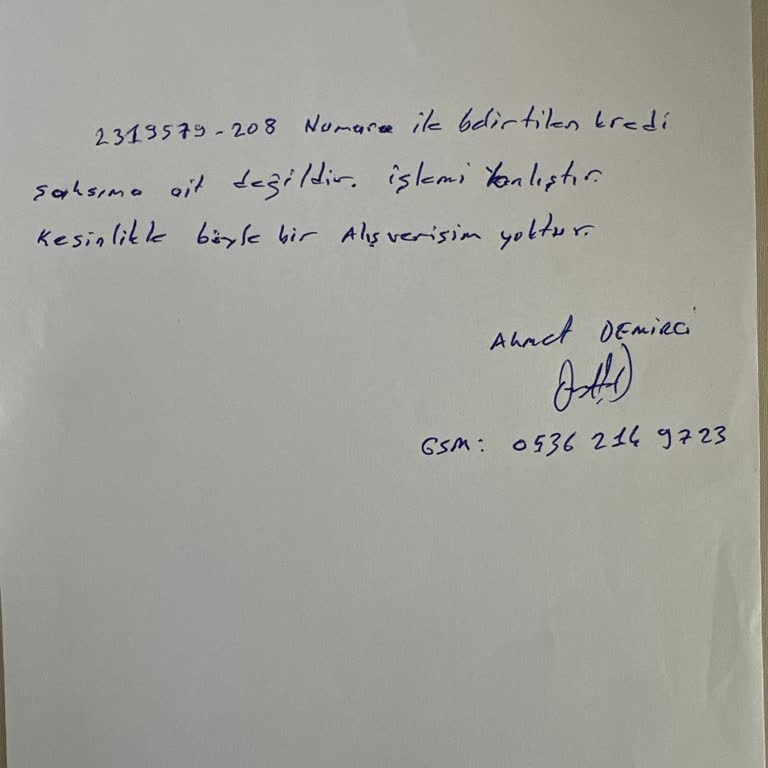 2319579-208 Numara ile belirtilen kredi
şahsıma ait değildir. işlemi Yanlıştır.
Kesinlikle böyle bir Alışverişim yoktur.
Ahmet DEMİRCİ
GSM: 0536 214 9723